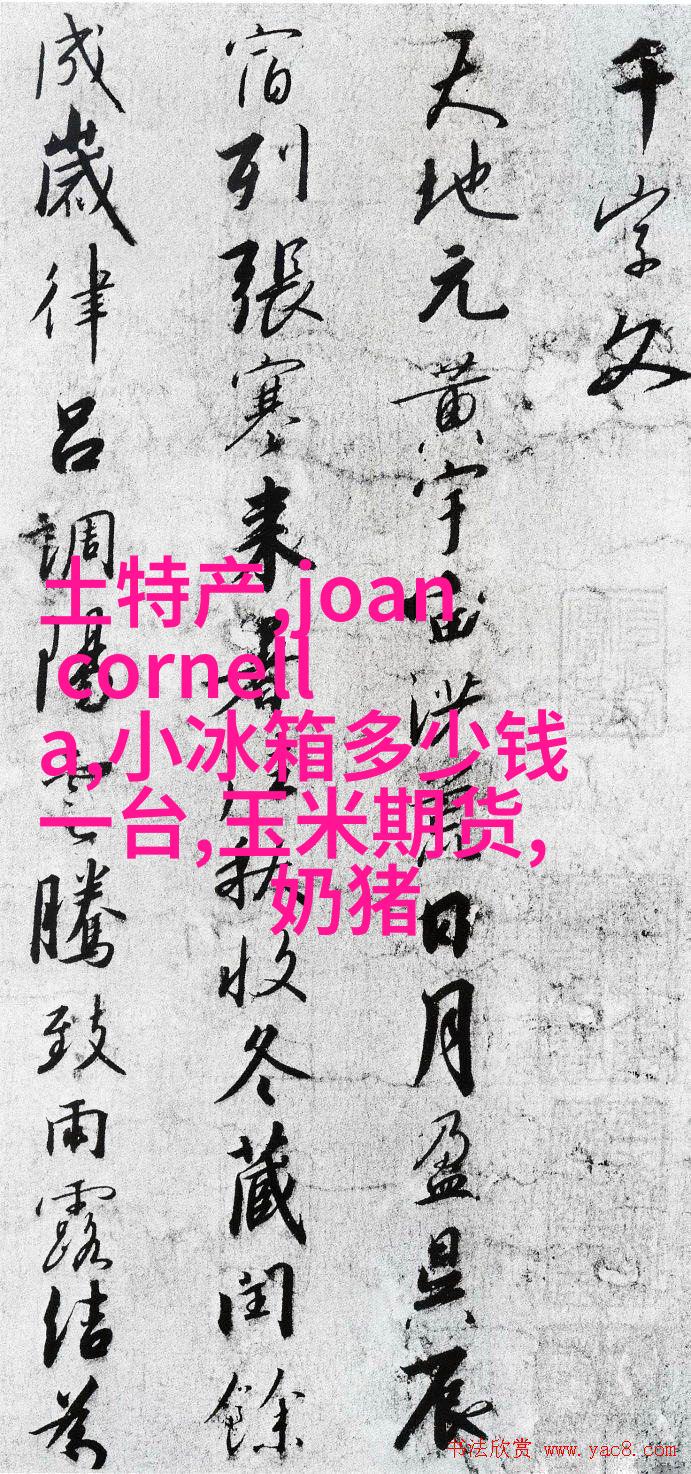 千字文
天地元黄宇宙洪荒日月盈昃辰
宿列張寒来暑往秋收冬藏閏餘
成歲律吕調陽雲騰致雨露结為
土特产,joan
cornell
a,小冰箱多少钱
一台,玉米期货,
奶猪
书法欣赏 www.yac8.com